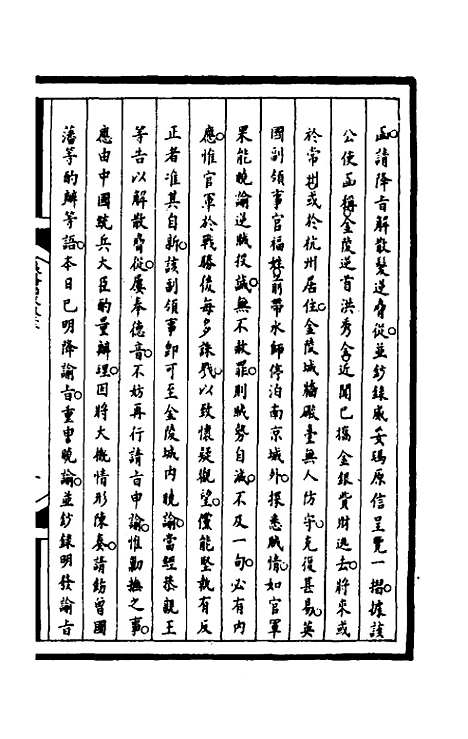 函請降旨解散髮逆脅從並鈔錄威妥瑪原信呈覽一摺據該
公使函稱金陵逆首洪秀全近聞已攜金銀貲財逃去將來或
於常州或於杭州居住金陵城牆礮臺無人防守克復甚易英
國副領事官福前帶水師停泊南京城外探悉賊情如官軍
果能曉諭逆賊投誠無不赦罪則賊勢自減不及一旬必有內
應惟官軍於戰勝後每多誅戮以致懷疑觀望儻能堅執有反
正者准其自新該副領事卽可至金陵城內曉諭當經恭親王
等告以解散脅從屢奉德音不妨再行請旨申諭惟勦撫之事
應由中國統兵大臣酌量辦理因將大概情形陳奏請飭曾國
藩等酌辦等語本日已明降諭旨重申曉諭並鈔錄明發諭旨